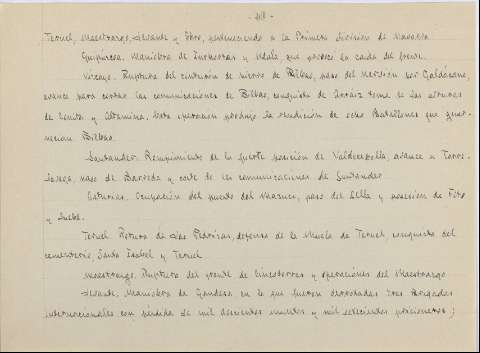 Teruel, Maestrazgo, Levante y Ebro, perteneciendo a la Primera División de Navarra
Guipúzcoa. Maniobra de y que produce la caída del frente.
Vizcaya. Ruptura del cinturón de hierro de Bilbao, paso del Nervión por Galdácano,
avance para cortar las comunicaciones de Bilbao, conquista de Arraiz toma de las alturas
de y Altamira. Esta operacion produjo la rendición de ocho Batallones que guar-
necian Bilbao.
Santander. Rompimiento de la fuerte posición de Valdecebolla, avance a Torre-
lavega, paso de Barreda y corte de las comunicaciones de Santander
Asturias. Ocupación del puerto del Mazuco, paso del Sella y posesión de
y
Teruel. Rotura de las Pedrizas, defensa de la Muela de Teruel, conquista del
cementerio, Santa Isabel y Teruel
Maestrazgo. Ruptura del frente de Cinctorres y operaciones del Maestrazgo
Levante. Maniobra de Gandesa en la que fueron derrotadas tres Brigadas
internacionales con perdida de mil doscientos muertos y mil setecientos prisioneros;